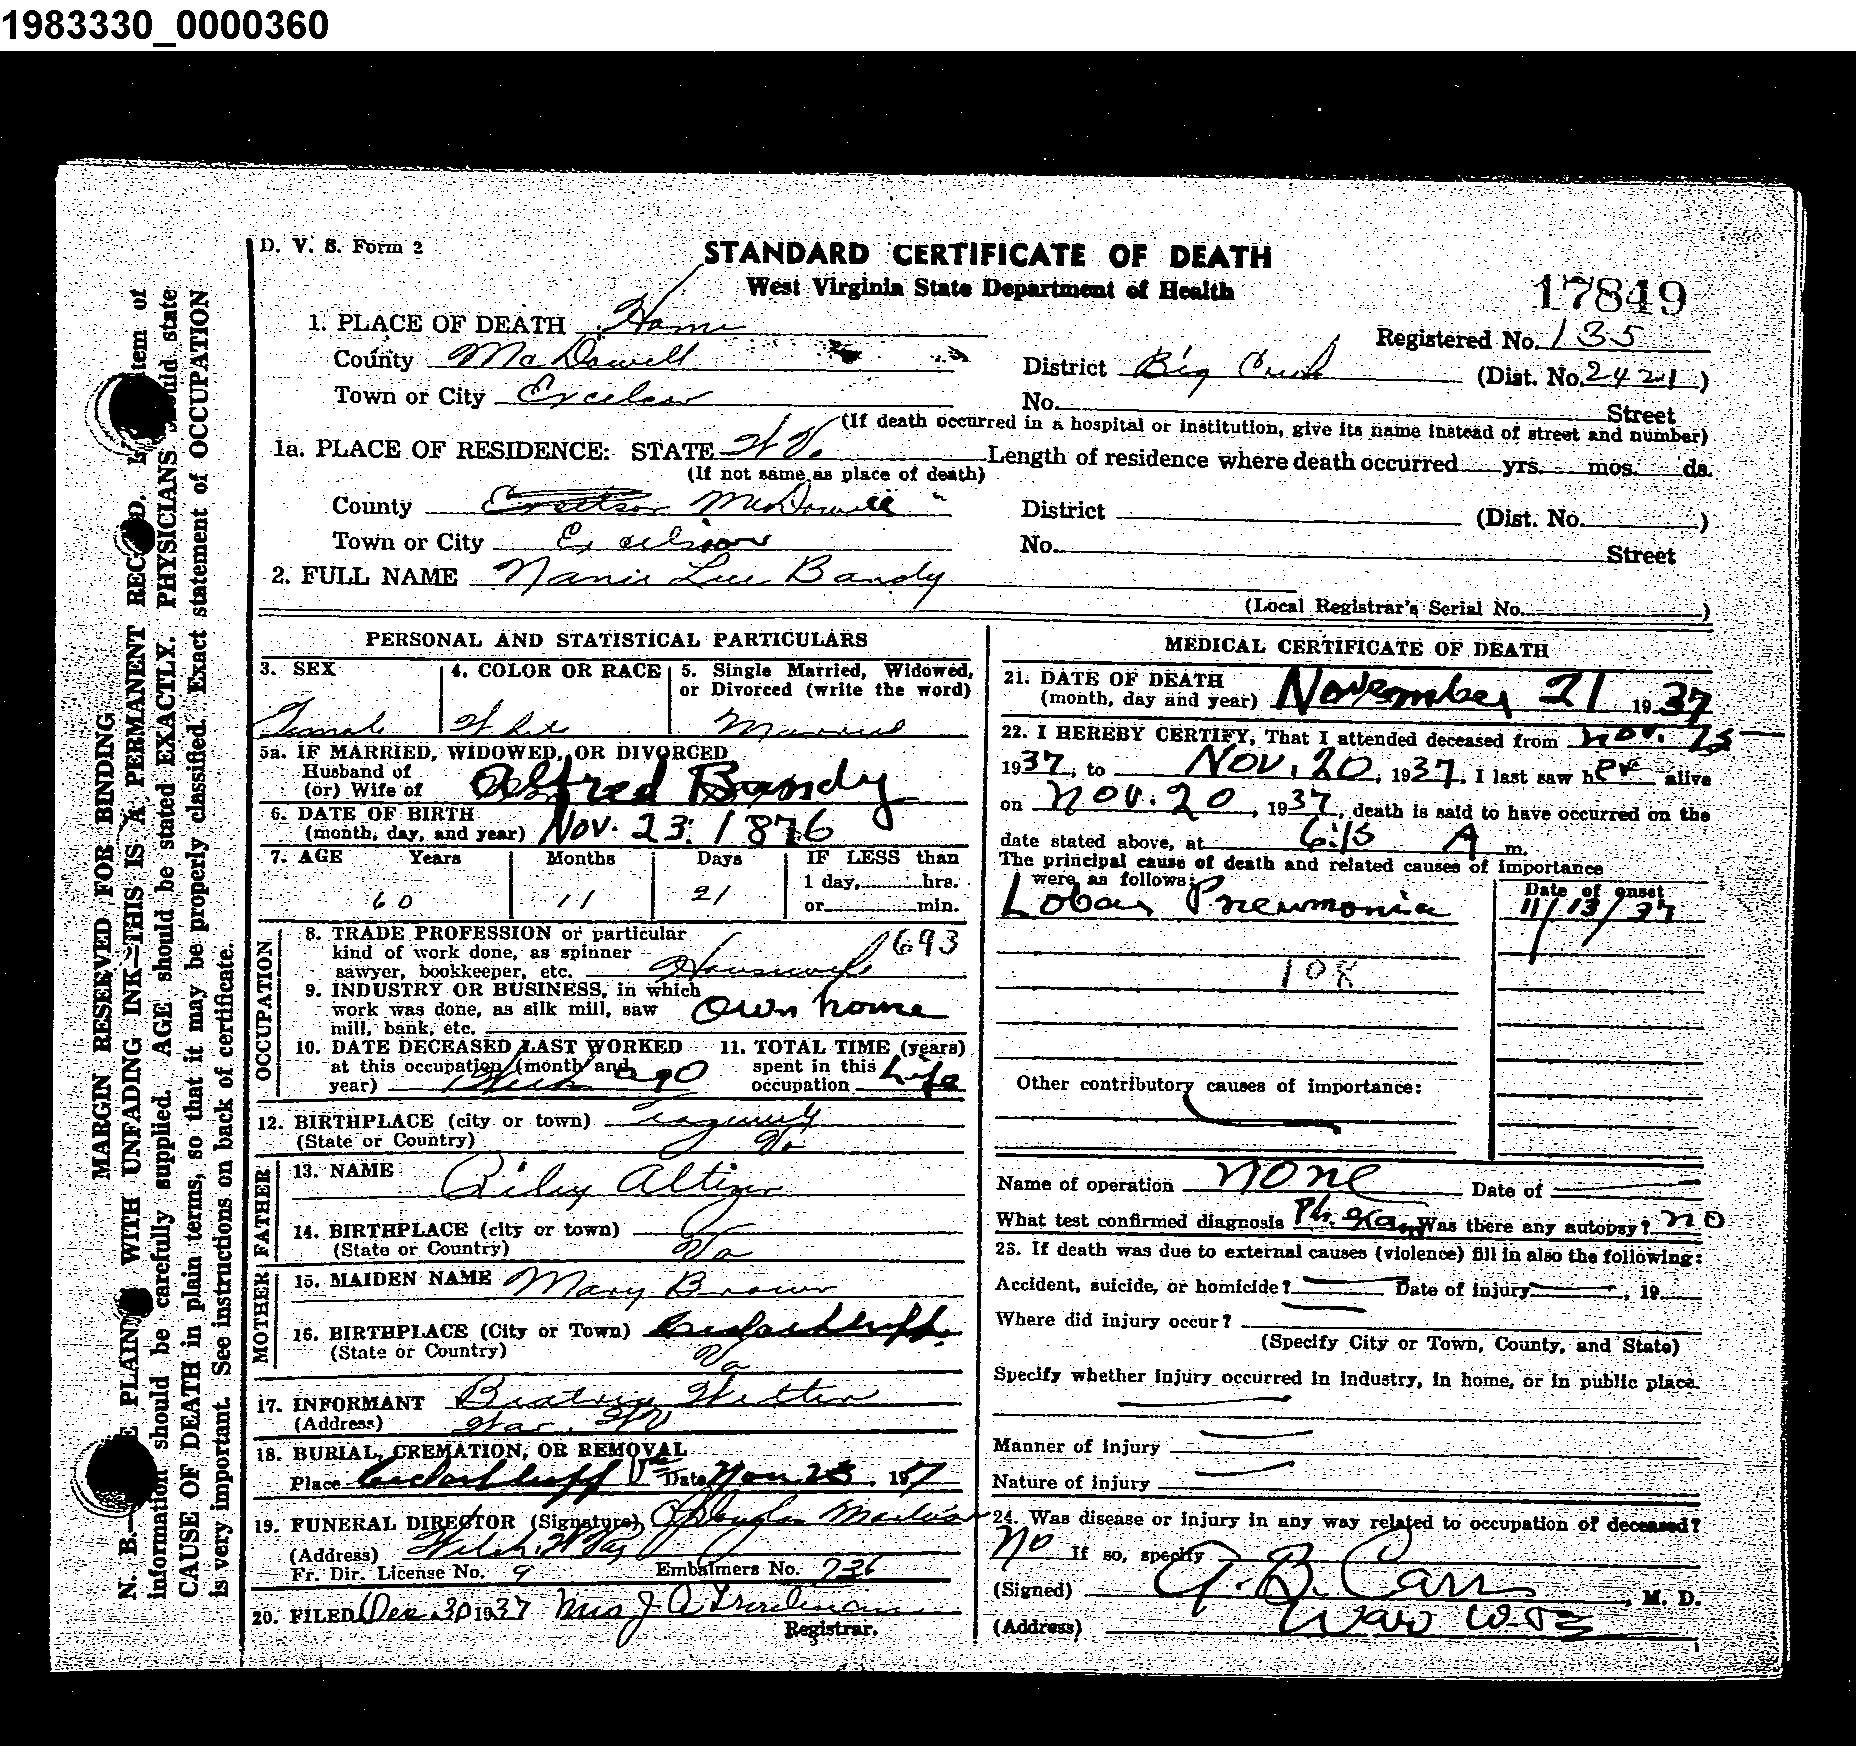 1983330_0000360
D. V. S. Form 2
STANDARD CERTIFICATE OF DEATH
West Virginia State Department of Health
17849
1. PLACE OF DEATH Home
Registered No. 135
County McDowell
District Big Creek (Dist. No. 2421)
Town or City Excelsior
No. Street
(If death occurred in a hospital or institution, give its name instead of street and number)
1a. PLACE OF RESIDENCE: STATE W V.
Length of residence where death occurred yrs. mos. ds.
(If not same as place of death)
County McDowell
District (Dist. No. )
Town or City Excelsior
No. Street
2. FULL NAME Nanie Lue Bandy
(Local Registrar's Serial No. )
PERSONAL AND STATISTICAL PARTICULARS
3. SEX
Female
4. COLOR OR RACE
White
5. Single Married, Widowed,
or Divorced (write the word)
Married
5a. IF MARRIED, WIDOWED, OR DIVORCED
Husband of
(or) Wife of Alfred Bandy
6. DATE OF BIRTH
(month, day, and year) Nov. 23. 1876
7. AGE Years Months Days IF LESS than
1 day, hrs.
or min.
60 11 21
OCCUPATION
8. TRADE PROFESSION or particular
kind of work done, as spinner
sawyer, bookkeeper, etc. Housewife 693
9. INDUSTRY OR BUSINESS, in which
work was done, as silk mill, saw
mill, bank, etc. own home
10. DATE DECEASED LAST WORKED
at this occupation (month and
year) Week ago
11. TOTAL TIME (years)
spent in this
occupation Life
12. BIRTHPLACE (city or town)
(State or Country) Va.
FATHER
13. NAME Riley Altizer
14. BIRTHPLACE (city or town)
(State or Country) Va
MOTHER
15. MAIDEN NAME Mary Brown
16. BIRTHPLACE (City or Town)
(State or Country) Va
17. INFORMANT Beatrice
(Address) War, W V
18. BURIAL, CREMATION, OR REMOVAL
Place Cedarbluff Va Date Nov 23, 1937
19. FUNERAL DIRECTOR (Signature) Douglas
(Address) Welch, W Va
Fr. Dir. License No. 9 Embalmers No. 736
20. FILED Dec 30 1937 Mrs J A
Registrar.
MEDICAL CERTIFICATE OF DEATH
21. DATE OF DEATH
(month, day and year) November 21 1937
22. I HEREBY CERTIFY, That I attended deceased from Nov. 15
1937, to Nov. 20, 1937. I last saw her alive
on Nov. 20, 1937, death is said to have occurred on the
date stated above, at 6:15 A m.
The principal cause of death and related causes of importance
were as follows:
Date of onset
Lobar Pneumonia 11/13/37
108
Other contributory causes of importance:
Name of operation none Date of
What test confirmed diagnosis Ph. Exam Was there any autopsy? no
23. If death was due to external causes (violence) fill in also the following:
Accident, suicide, or homicide? Date of injury , 19
Where did injury occur?
(Specify City or Town, County, and State)
Specify whether injury occurred in industry, in home, or in public place.
Manner of injury
Nature of injury
24. Was disease or injury in any way related to occupation of deceased?
No If so, specify
(Signed) A. B. Carr, M. D.
(Address) War W. Va
MARGIN RESERVED FOR BINDING
N. B. PLAIN WITH UNFADING INK—THIS IS A PERMANENT RECORD. item of
information should be carefully supplied. AGE should be stated EXACTLY. PHYSICIANS should state
CAUSE OF DEATH in plain terms, so that it may be properly classified. Exact statement of OCCUPATION
is very important. See instructions on back of certificate.